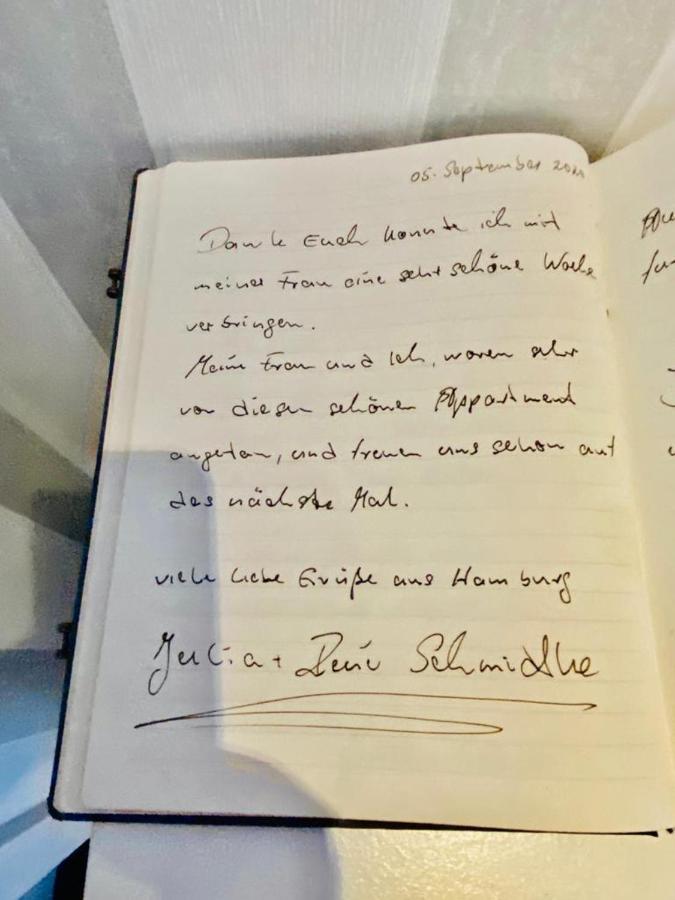 05. September
Dank Euch konnte ich mit
meiner Frau eine sehr schöne Woche
verbringen.
Meine Frau und Ich, waren sehr
von diesen schönen Appartment
angetan, und freuen uns schon auf
das nächste Mal.
viele liebe Grüße aus Hamburg
Julia + René Schmidtke